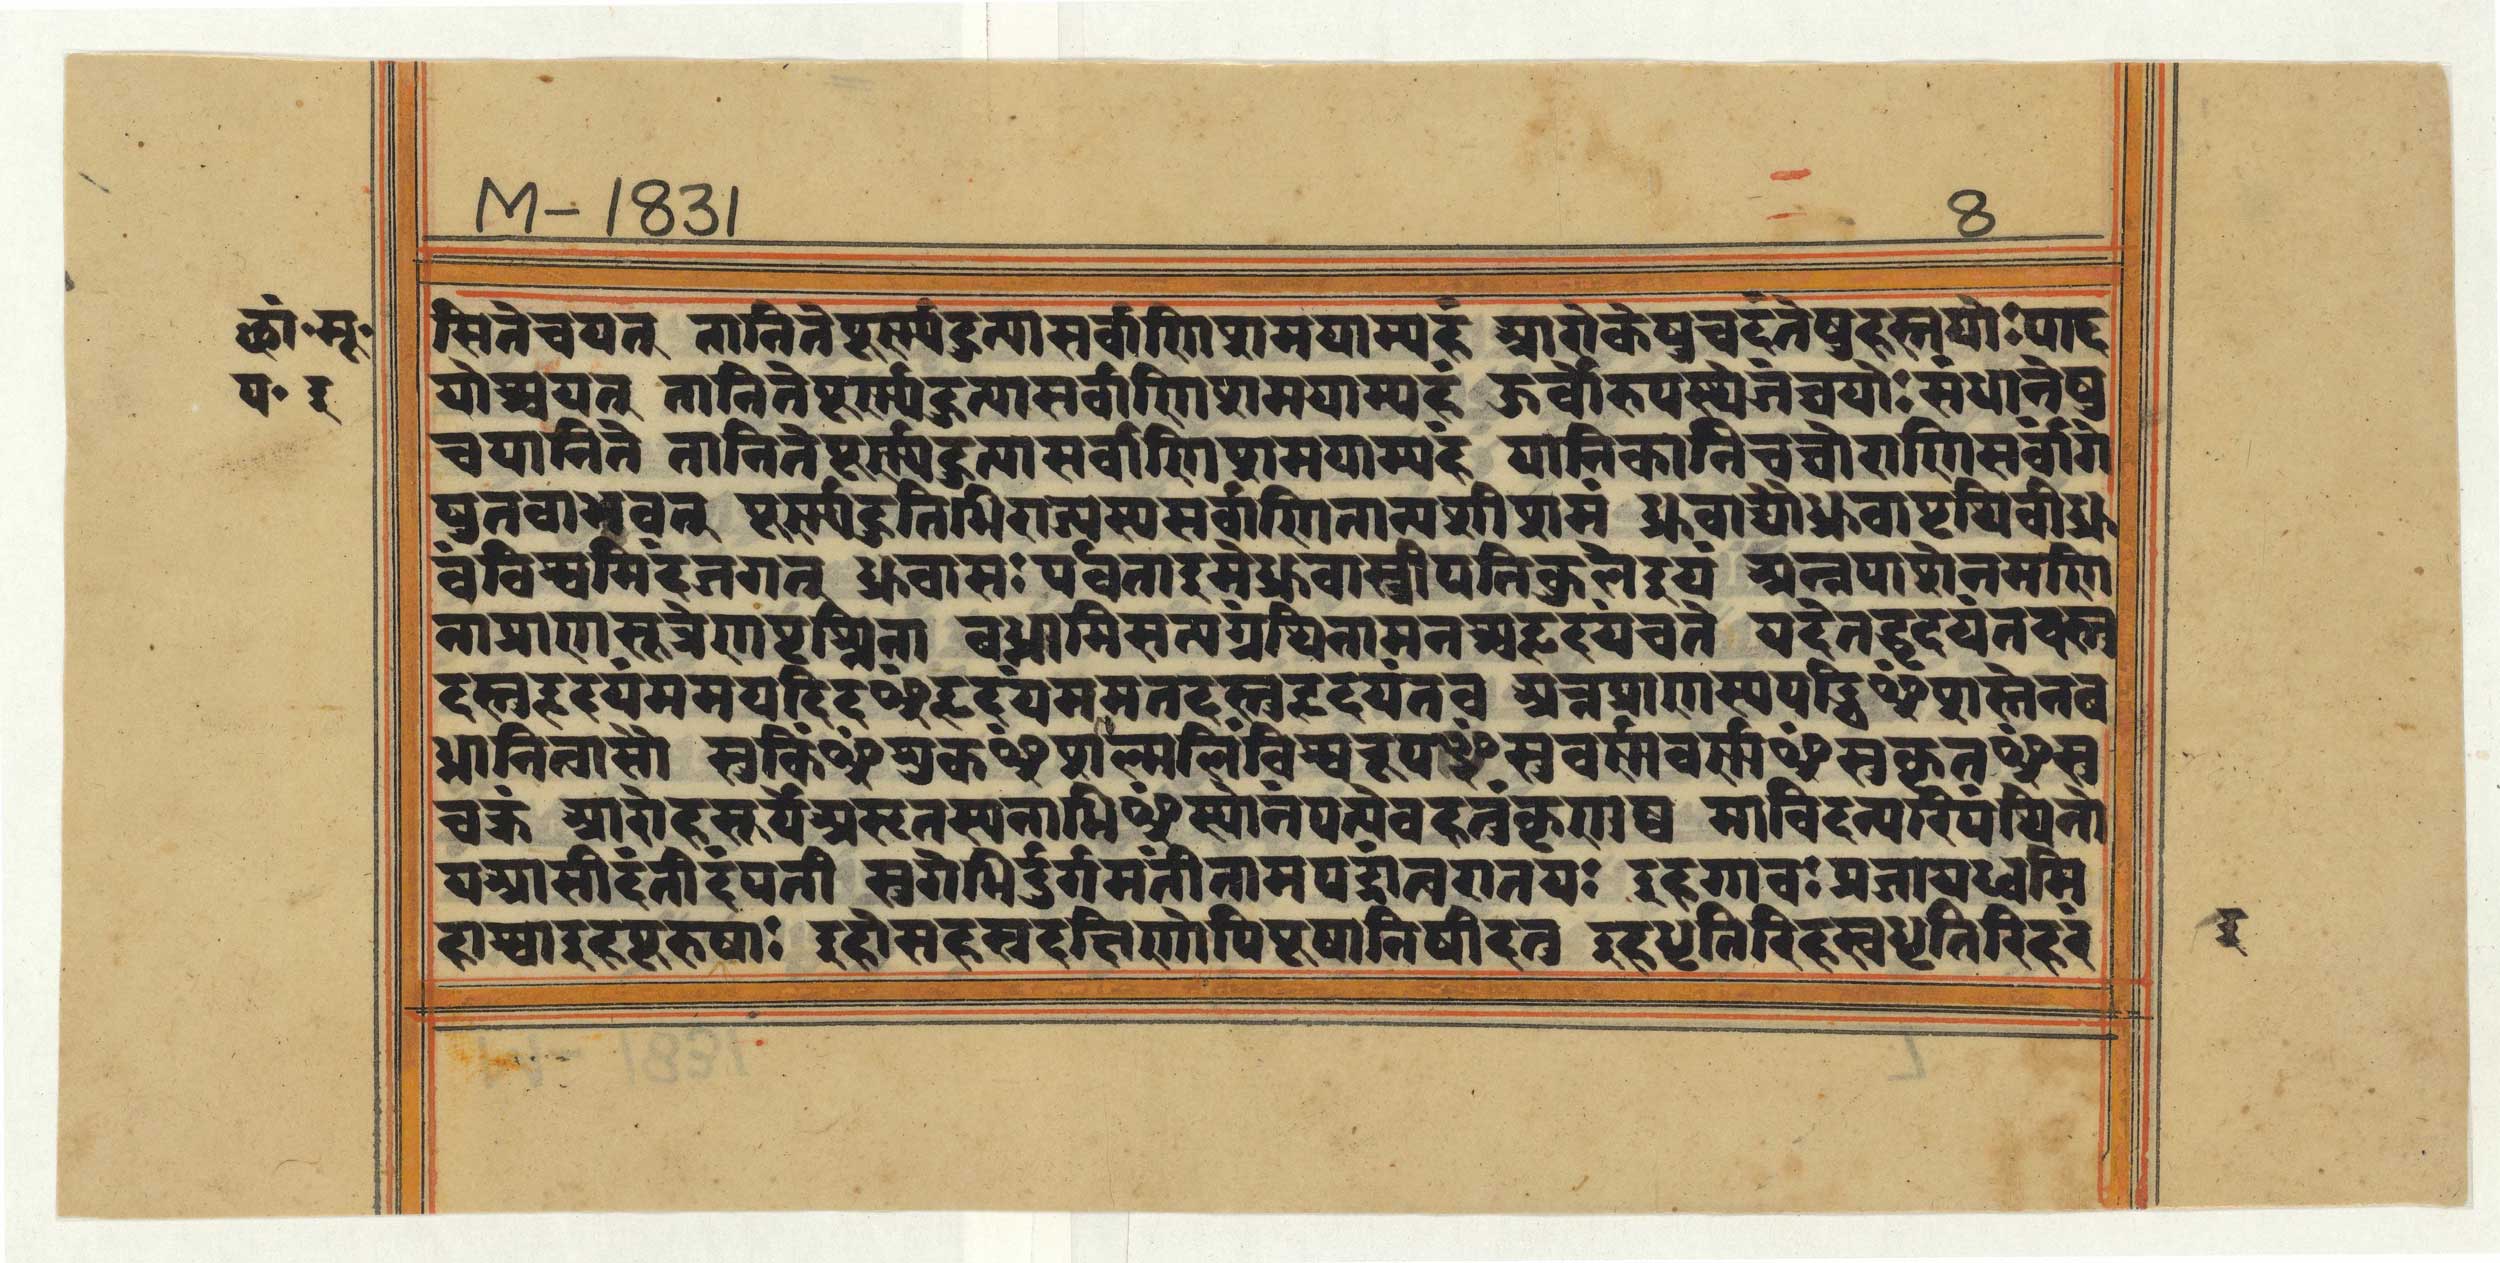 M-1831 8
छां॰मं॰
प॰ इ
सितेचयत् तानितेपूर्णाहुत्यासर्वाणिशामयाम्यहं आरोकेषुचदंतेषुहस्तयोःपाद
योश्चयत् तानितेपूर्णाहुत्यासर्वाणिशामयाम्यहं ऊर्वोरुपस्थेजंघयोःसंधानेषु
चयानिते तानितेपूर्णाहुत्यासर्वाणिशामयाम्यहं यानिकानिचघोराणिसर्वांगे
षुतवाभवत् पूर्णाहुतिभिराज्यस्यसर्वाणितान्यशीशमं ध्रुवाद्यौध्रुवापृथिवीध्रु
वंविश्वमिदंजगत् ध्रुवासःपर्वताइमेध्रुवास्त्रीपतिकुलेइयं अन्नपाशेनमणि
नाप्राणसूत्रेणपृश्निना बध्नामिसत्यग्रंथिनामनश्चहृदयंचते यदेतद्धृदयंतवत
दस्तुहृदयंममयदिदꣳहृदयंममतदस्तुहृदयंतव अन्नप्राणस्यपड्विꣳशस्तेनब
ध्नामित्वासौ सुकिꣳशुकꣳशल्मलिंविश्वरूपꣳसुवर्णवर्णꣳसुकृतꣳसु
चक्रं आरोहसूर्येअमृतस्यनाभिꣳस्योनंपत्येवहतुंकृणुष्व माविदन्परिपंथिनो
यआसीदंतीदंपती सुगेभिर्दुर्गमतीतामपद्रांत्वरातयः इहगावःप्रजायध्वमि
हाश्वाइहपूरुषाः इहोसहस्रदक्षिणोपिपूषानिषीदतु इहधृतिरिहस्वधृतिरिहरं
इ